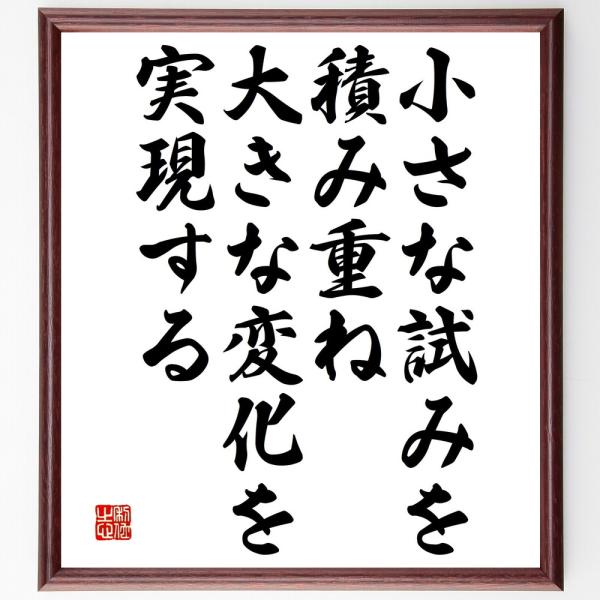 小さな試みを
積み重ね
大きな変化を
実現する